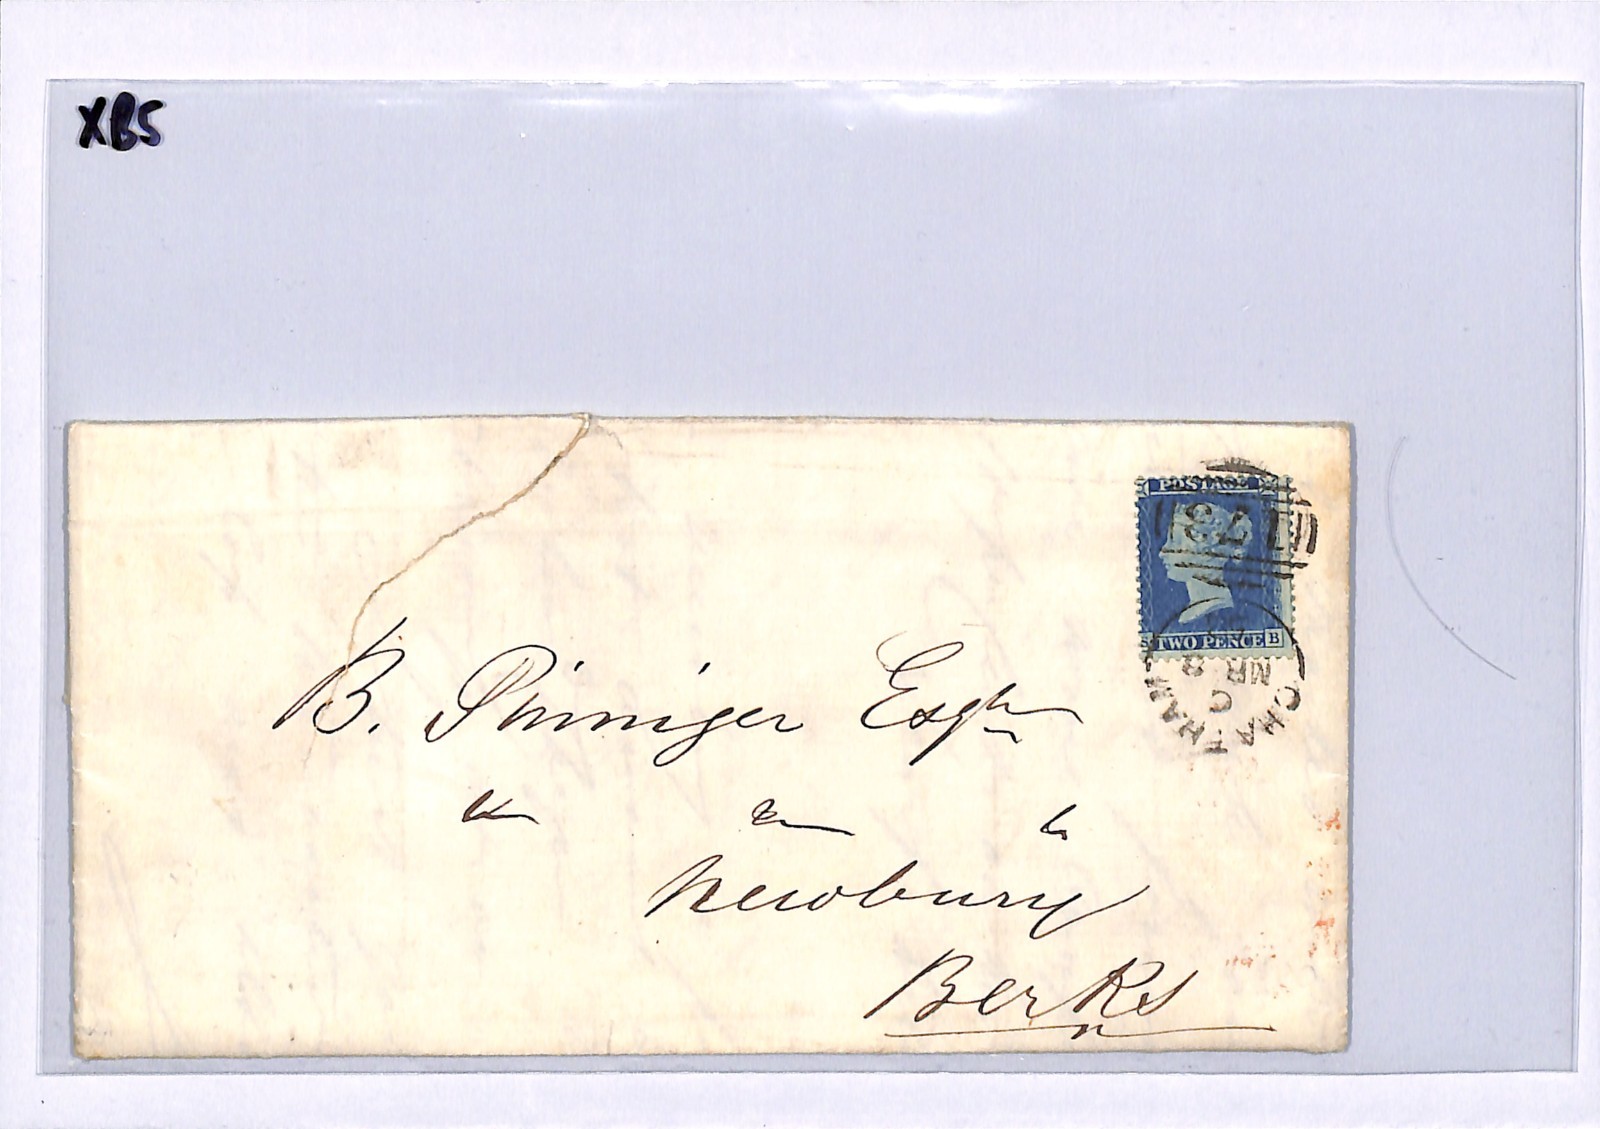 XB5
POSTAGE
173
S TWO PENCE B
MR 8
C
CHATHAM
B. Pinniger Esqre
Newbury
Berks